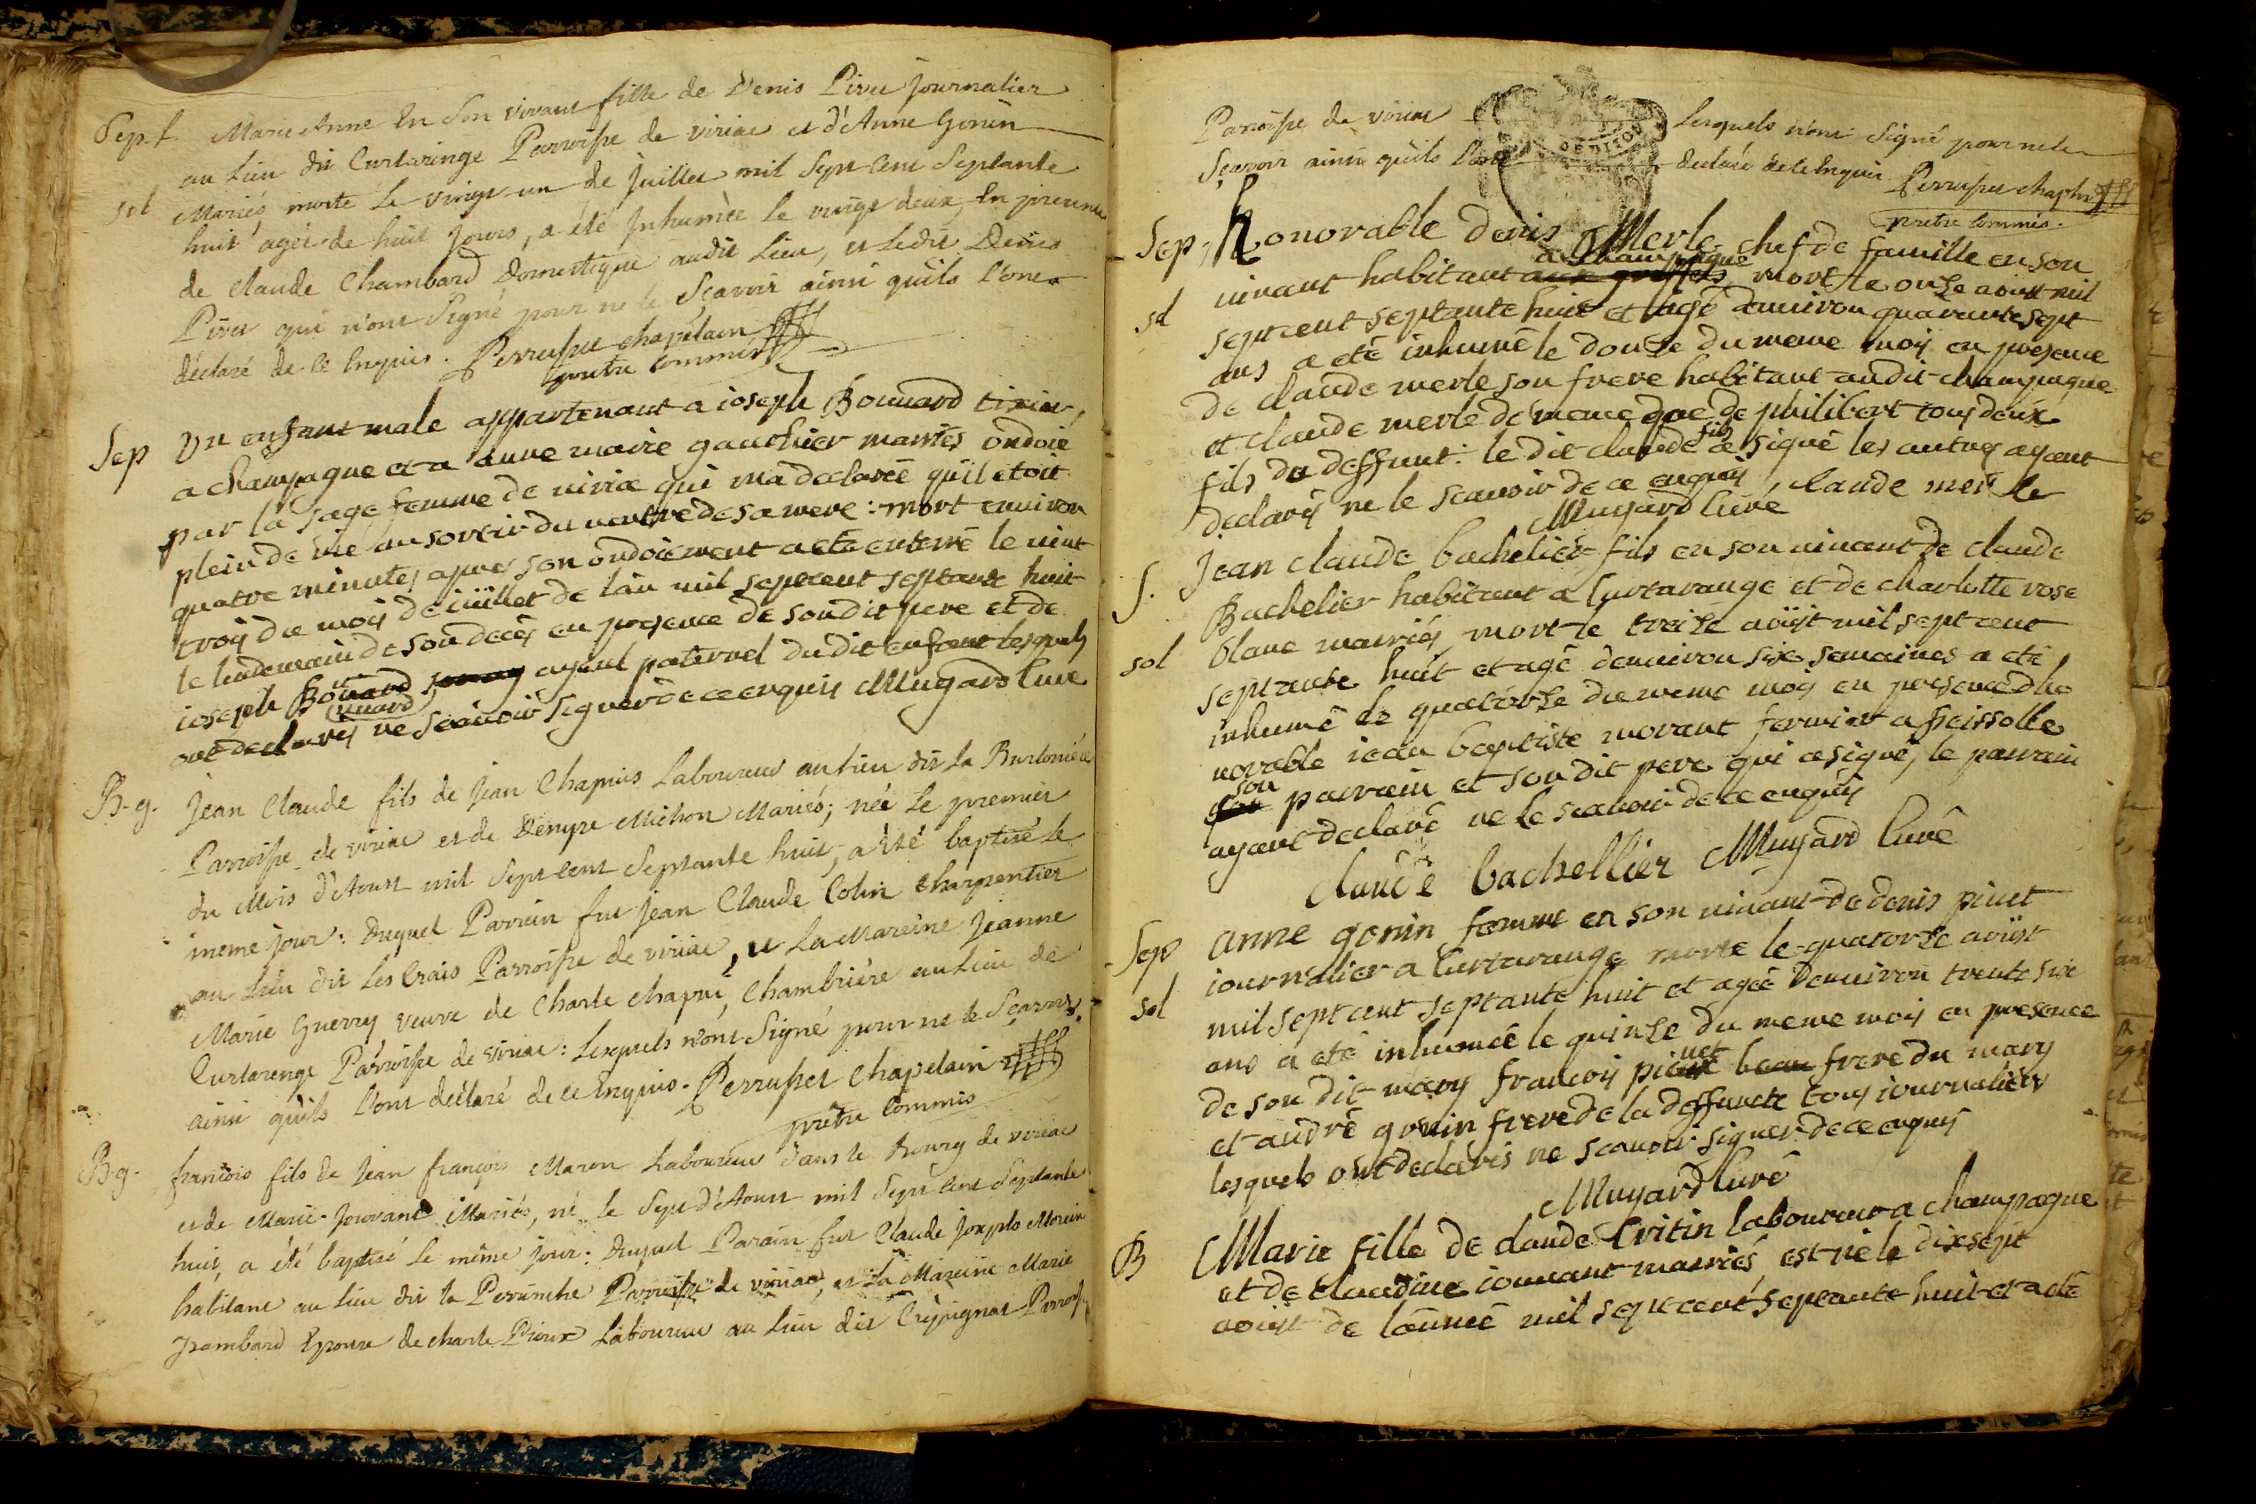 Sep. f. Marie Anne En Son vivant fille de Denis Pivet Journalier
au Lieu dit Curtaringe Parroisse de viriac et d'Anne Gonin
sol Mariés, morte Le vingt un de Juillet mil Sept Cent Septante
huit agée de huit Jours, a été Inhumée le vingt deux, En presence
de Claude Chambard Domestique audit Lieu, et Ledit Denis
Pivet qui n'ont Signé pour ne le Sçavoir ainsi qu'ils L'ont
déclaré de ce Enquis. Perrusset chapelain
pretre commis
Sep Un enfant male appartenant a ioseph Bouuard tixier,
a champagne et a anne marie gauthier mariés ondoié
par la sage femme de viriac qui m'a declaré qu'il etoit
plein de vie au sortir du ventre de sa mere: mort environ
quatre minutes apres son ondoiement a eté enterré le vint
trois du mois de iuillet de l'an mil septcent septante huit
le lendemain de son decès en presence de son dit pere et de
ioseph Bouuard ayeul paternel du dit enfant lesquels
uuard
ont declarés ne scavoir signer de ce enquis Muyard Curé
B. g. Jean Claude fils de Jean Chapuis Laboureur au lieu dit la Burtonière
Parroisse de viriac et de Denyse Michon Mariés; né Le premier
du Mois d'Aoust mil Sept Cent Septante huit, a été baptisé le
meme jour: Duquel Parrain fut Jean Claude Colin Charpentier
au Lieu dit Les Crais Parroisse de viriac, et La Mareine Jeanne
Marie Guerry veuve de Charle chapui, Chambrière au Lieu de
Curtarenge Parroisse de viriac: Lesquels n'ont Signé pour ne le Sçavoir
ainsi qu'ils L'ont déclaré de ce Enquis. Perrusset Chapelain
pretre Commis
B. g. francois fils de Jean françois Maron Laboureur dans le Bourg de viriac
et de Marie Jouvant Mariés, né le Sept d'Aoust mil Sept Cent Septante
huit, a été baptisé le même jour: Duquel Parain fut Claude Joseph Morin
habitant au Lieu dit la Pervinche Parroisse de viriac, et La Mareine Marie
Epouse de charle Pioux Laboureur au Lieu dit Crépignat Parroisse
Parroisse de viriac Lesquels n'ont Signé pour ne le
Sçavoir ainsi qu'ils L'ont declaré de ce Enquis Perrusset chapln
pretre commis.
Sep, Honorable denis Merle chef de famille en son
a Champagne
sol vivant habitant mort le onze aoust mil
septcent septante huit et agé d'environ quarante sept
ans a eté inhumé le douze du meme mois en presence
de claude merle son frere habitant audit champagne
et claude merle de meme que de philibert tous deux
fils
fils du deffunt. le dit claude a signé les autres ayant
declarés ne le scavoir de ce enquis, claude merle
Muyard Curé
S. Jean claude bachelier fils en son vivant de claude
Bachelier habitant a Curtarange et de charlotte rose
sol blanc mariés mort le treize aoûst mil sept cent
septante huit et agé d'environ six semaines a eté
inhumé le quatorze du meme mois en presence d'ho
norable iean baptiste morant fermier a freissolle
son
parrain et son dit pere qui a signé, le parrain
ayant declaré ne le scavoir de ce enquis
claude bachellier Muyard Curé
Sep anne gonin femme en son vivant de denis pivet
iournalier a Curtarange morte le quatorze aoûst
sol mil sept cent septante huit et agée d'environ trente six
ans a eté inhumée le quinze du meme mois en presence
vet
de son dit mary francois pivet beau frere du mary
et andré gonin frere de la deffuncte tous iournaliers
lesquels ont declarés ne scavoir signer de ce enquis
Muyard Curé
B Marie fille de claude Critin laboureur a champagne
et de claudine iouvant mariés est née le dixsept
aoûst de l'année mil sept cent septante huit et a eté